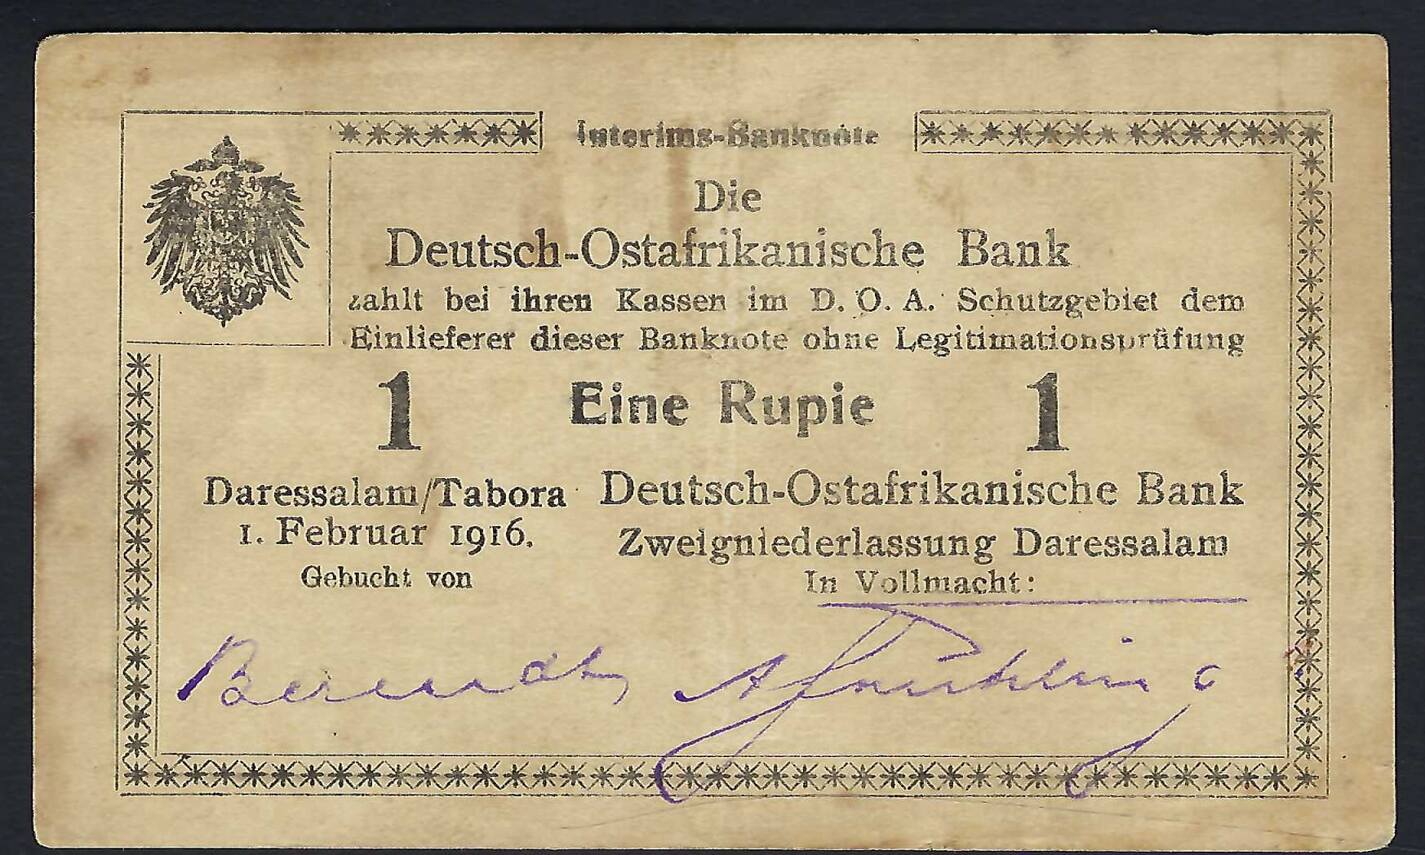 Interims-Banknote
Die
Deutsch-Ostafrikanische Bank
zahlt bei ihren Kassen im D. O. A. Schutzgebiet dem
Einlieferer dieser Banknote ohne Legitimationsprüfung
1 Eine Rupie 1
Daressalam/Tabora Deutsch-Ostafrikanische Bank
1. Februar 1916. Zweigniederlassung Daressalam
Gebucht von In Vollmacht: